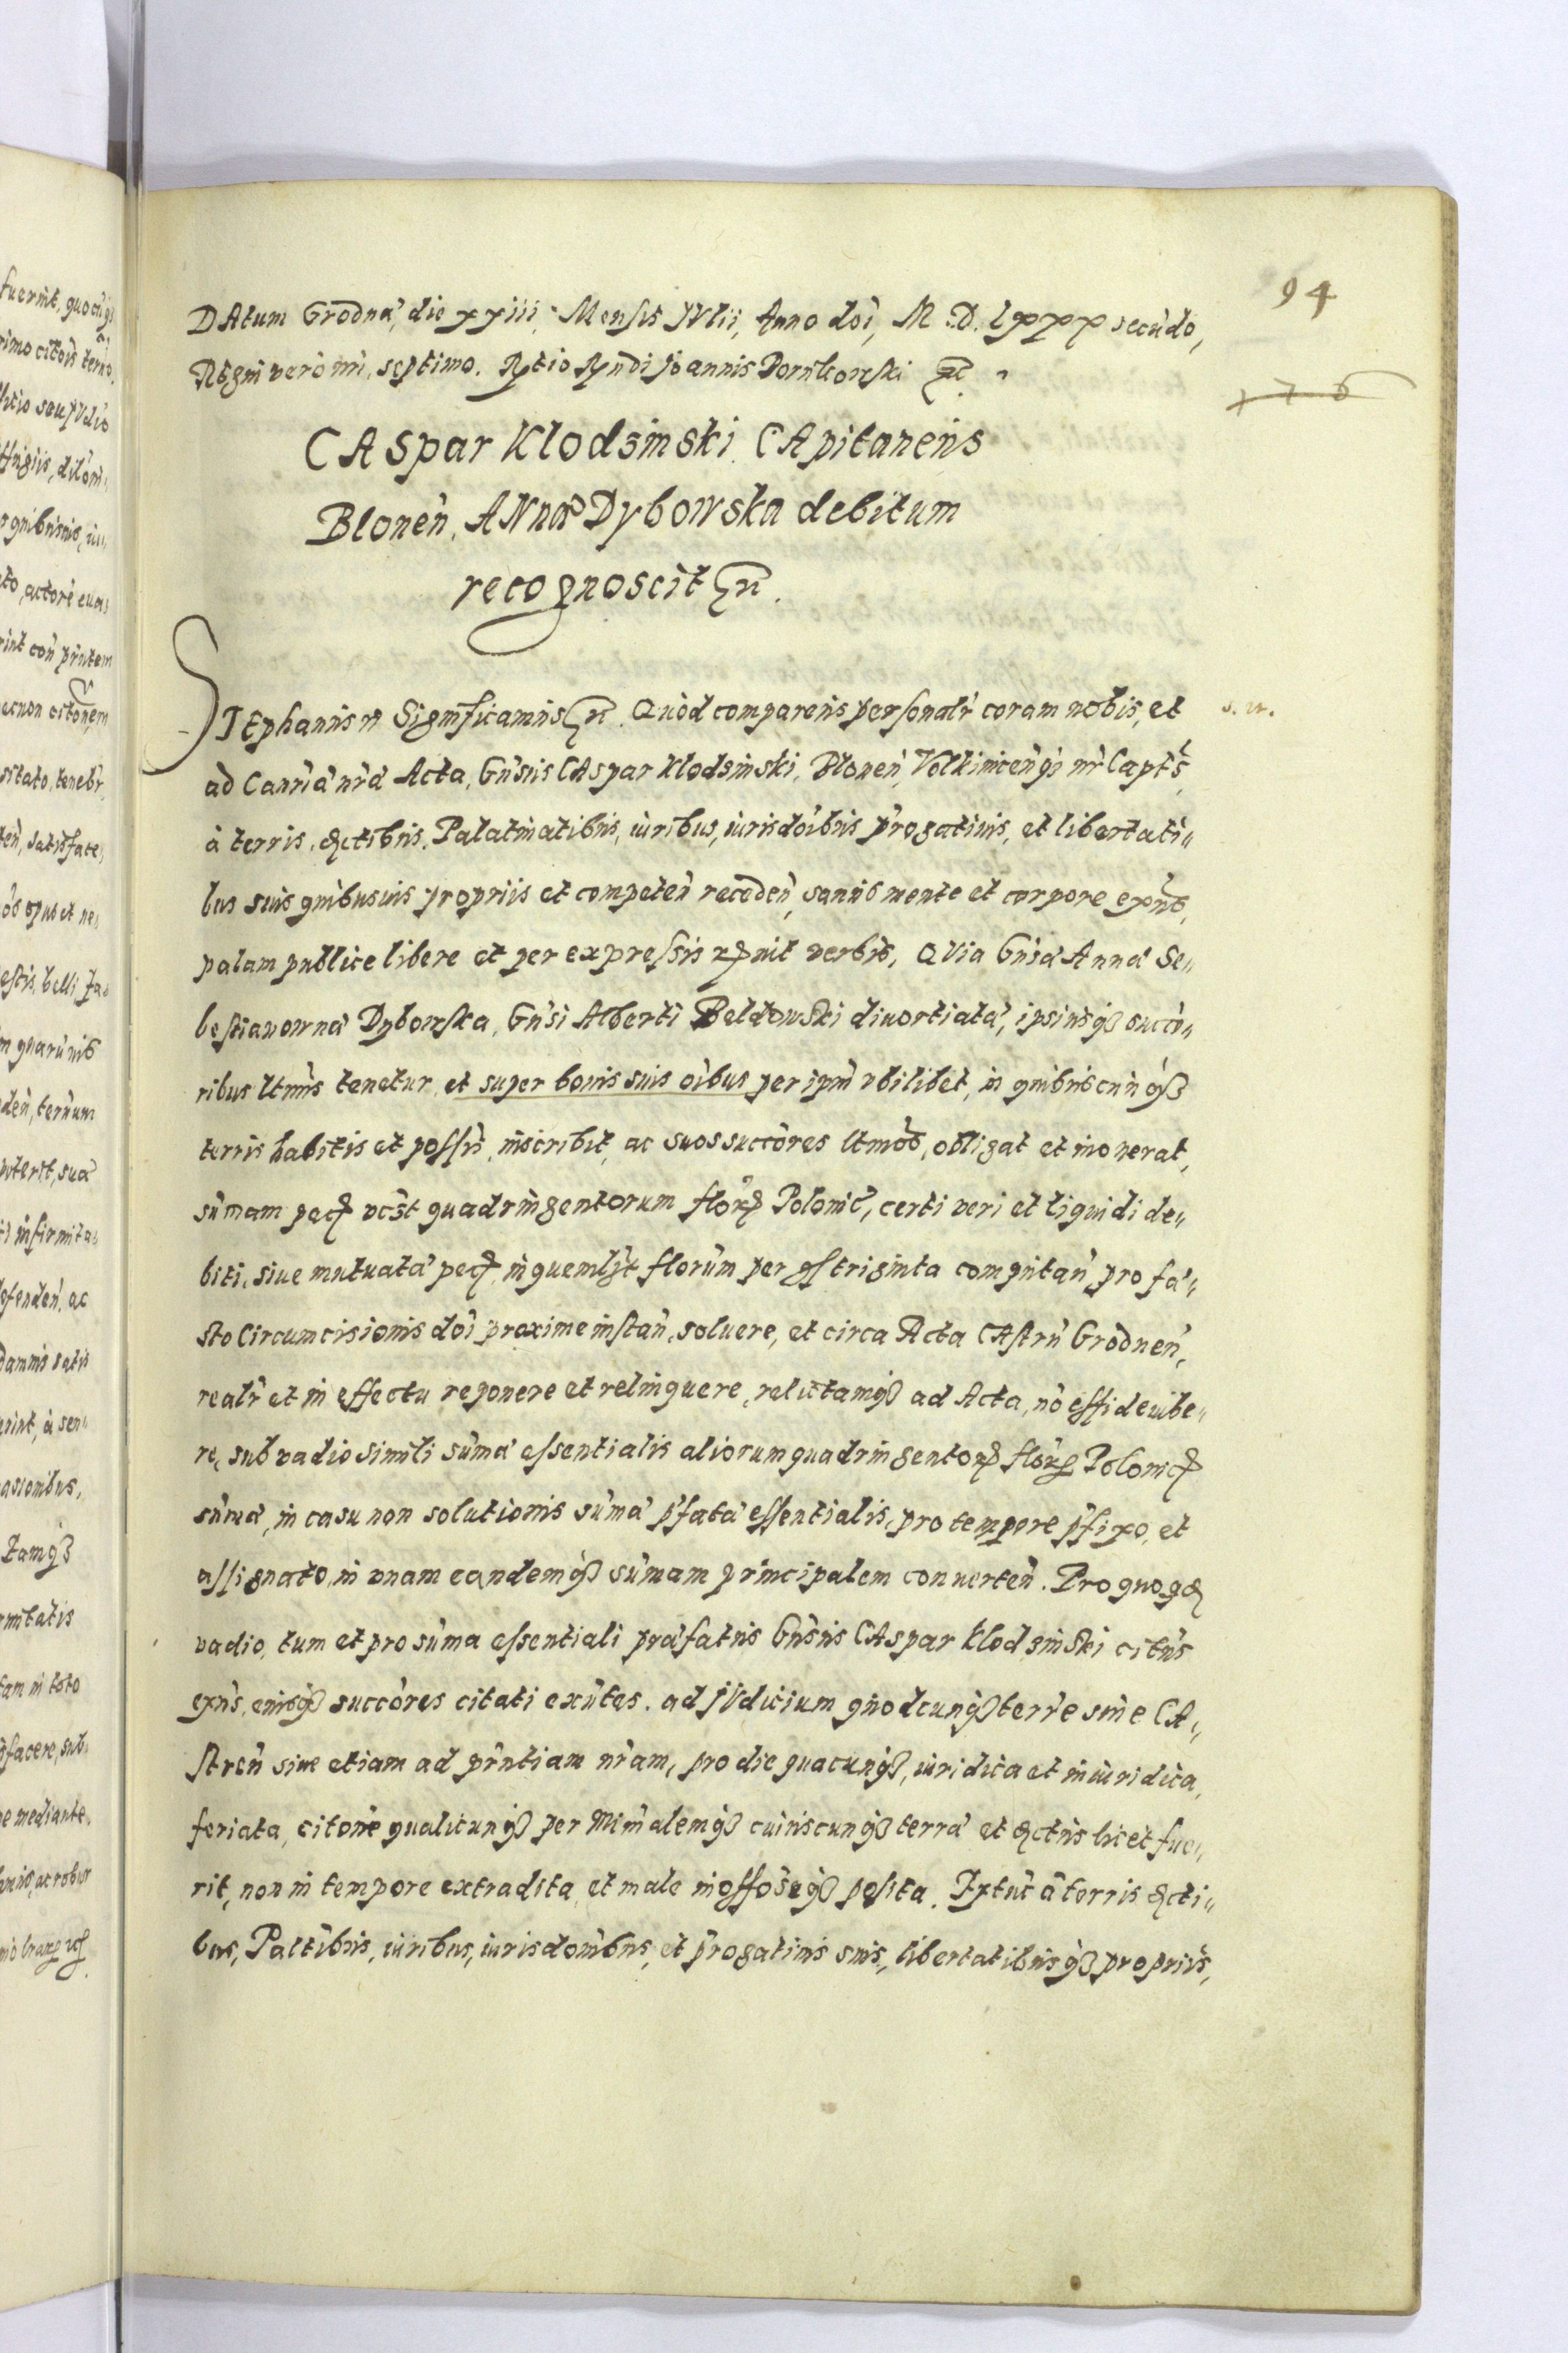 94
DAtum Grodnæ, die xxiii, Mensis JVlii, Anno doi, M. D. lxxx secũdo,
Regni vero nri, septimo. Rłtio Rndi Joannis Borukowski ꝛc.
176
CAspar Klodzinski CApitaneus
Blonen̄, ANnæ Dybowska debitum
recognoscit ꝛc.
STEphanus ꝛc Significamus ꝛc. Quod comparens personalr̄ coram nobis, et
ad Canriæ nr̄æ Acta, Gnsus CAspar Klodzinski, Blonen̄, Volkinicen̄q; nr̄ Capts̄,
à terris, dctibus, Palatinatibus, iuribus, iurisdoibus progatiuis, et libertati„
bus suis quibusuis propriis et competen̄ receden̄, sanus mente et corpore exn̄s,
palam publice libere et per expressis rnuit verbis, QVia Gnsæ Annæ Se„
bestianownæ Dybowska, Gn̄si Alberti Beldowski diuortiatæ, ipsiusq; succr̄i„
ribus ltmis tenetur, et super bonis suis oibus per ipm̄ vbilibet, in quibuscunq;
terris habitis et possis, inscribit, ac suos succores ltmos, obligat et inonerat,
sum̄am pec vcst quadringentorum flor Polonic, certi veri et liquidi de„
biti, siue mutuatæ pec, in quemlʒt florūm per gs triginta computan̄, pro fæ„
sto Circumcisionis doi proxime instan̄, soluere, et circa Acta CAstrn̄ Grodnen̄,
realr̄ et in effectu reponere et relinquere, relictamq; ad Acta, nō effideiube„
re, sub vadio simili sum̄æ essentialis aliorum quadringentor flor Polonic
sum̄æ, in casu non solutionis sum̄æ pfatæ essentialis, pro tempore pfixo, et
assignato, in vnam eandemq; sum̄am principalem conuerten̄. Pro quoqd
vadio, tum et pro sum̄a essentiali præfatus Gnsus CAspar Klodzinski cit̄us
exn̄s, eiusq; succores citati exn̄tes, ad JVdicium quodcunq; terr̄e siue CA„
stren̄ siue etiam ad prn̄tiam nr̄am, pro die quacunq;, iuridica et iniuridica,
feriata, citone qualicunq; per Minalemq; cuiuscunq; terræ et dctus licet fue„
rit, non in tempore extradita, et male inofsoseq; posita. Extūc à terris dcti„
bus, Paltibus, iuribus, iurisdonibus, et progatiuis suis, libertatibusq; propriis,